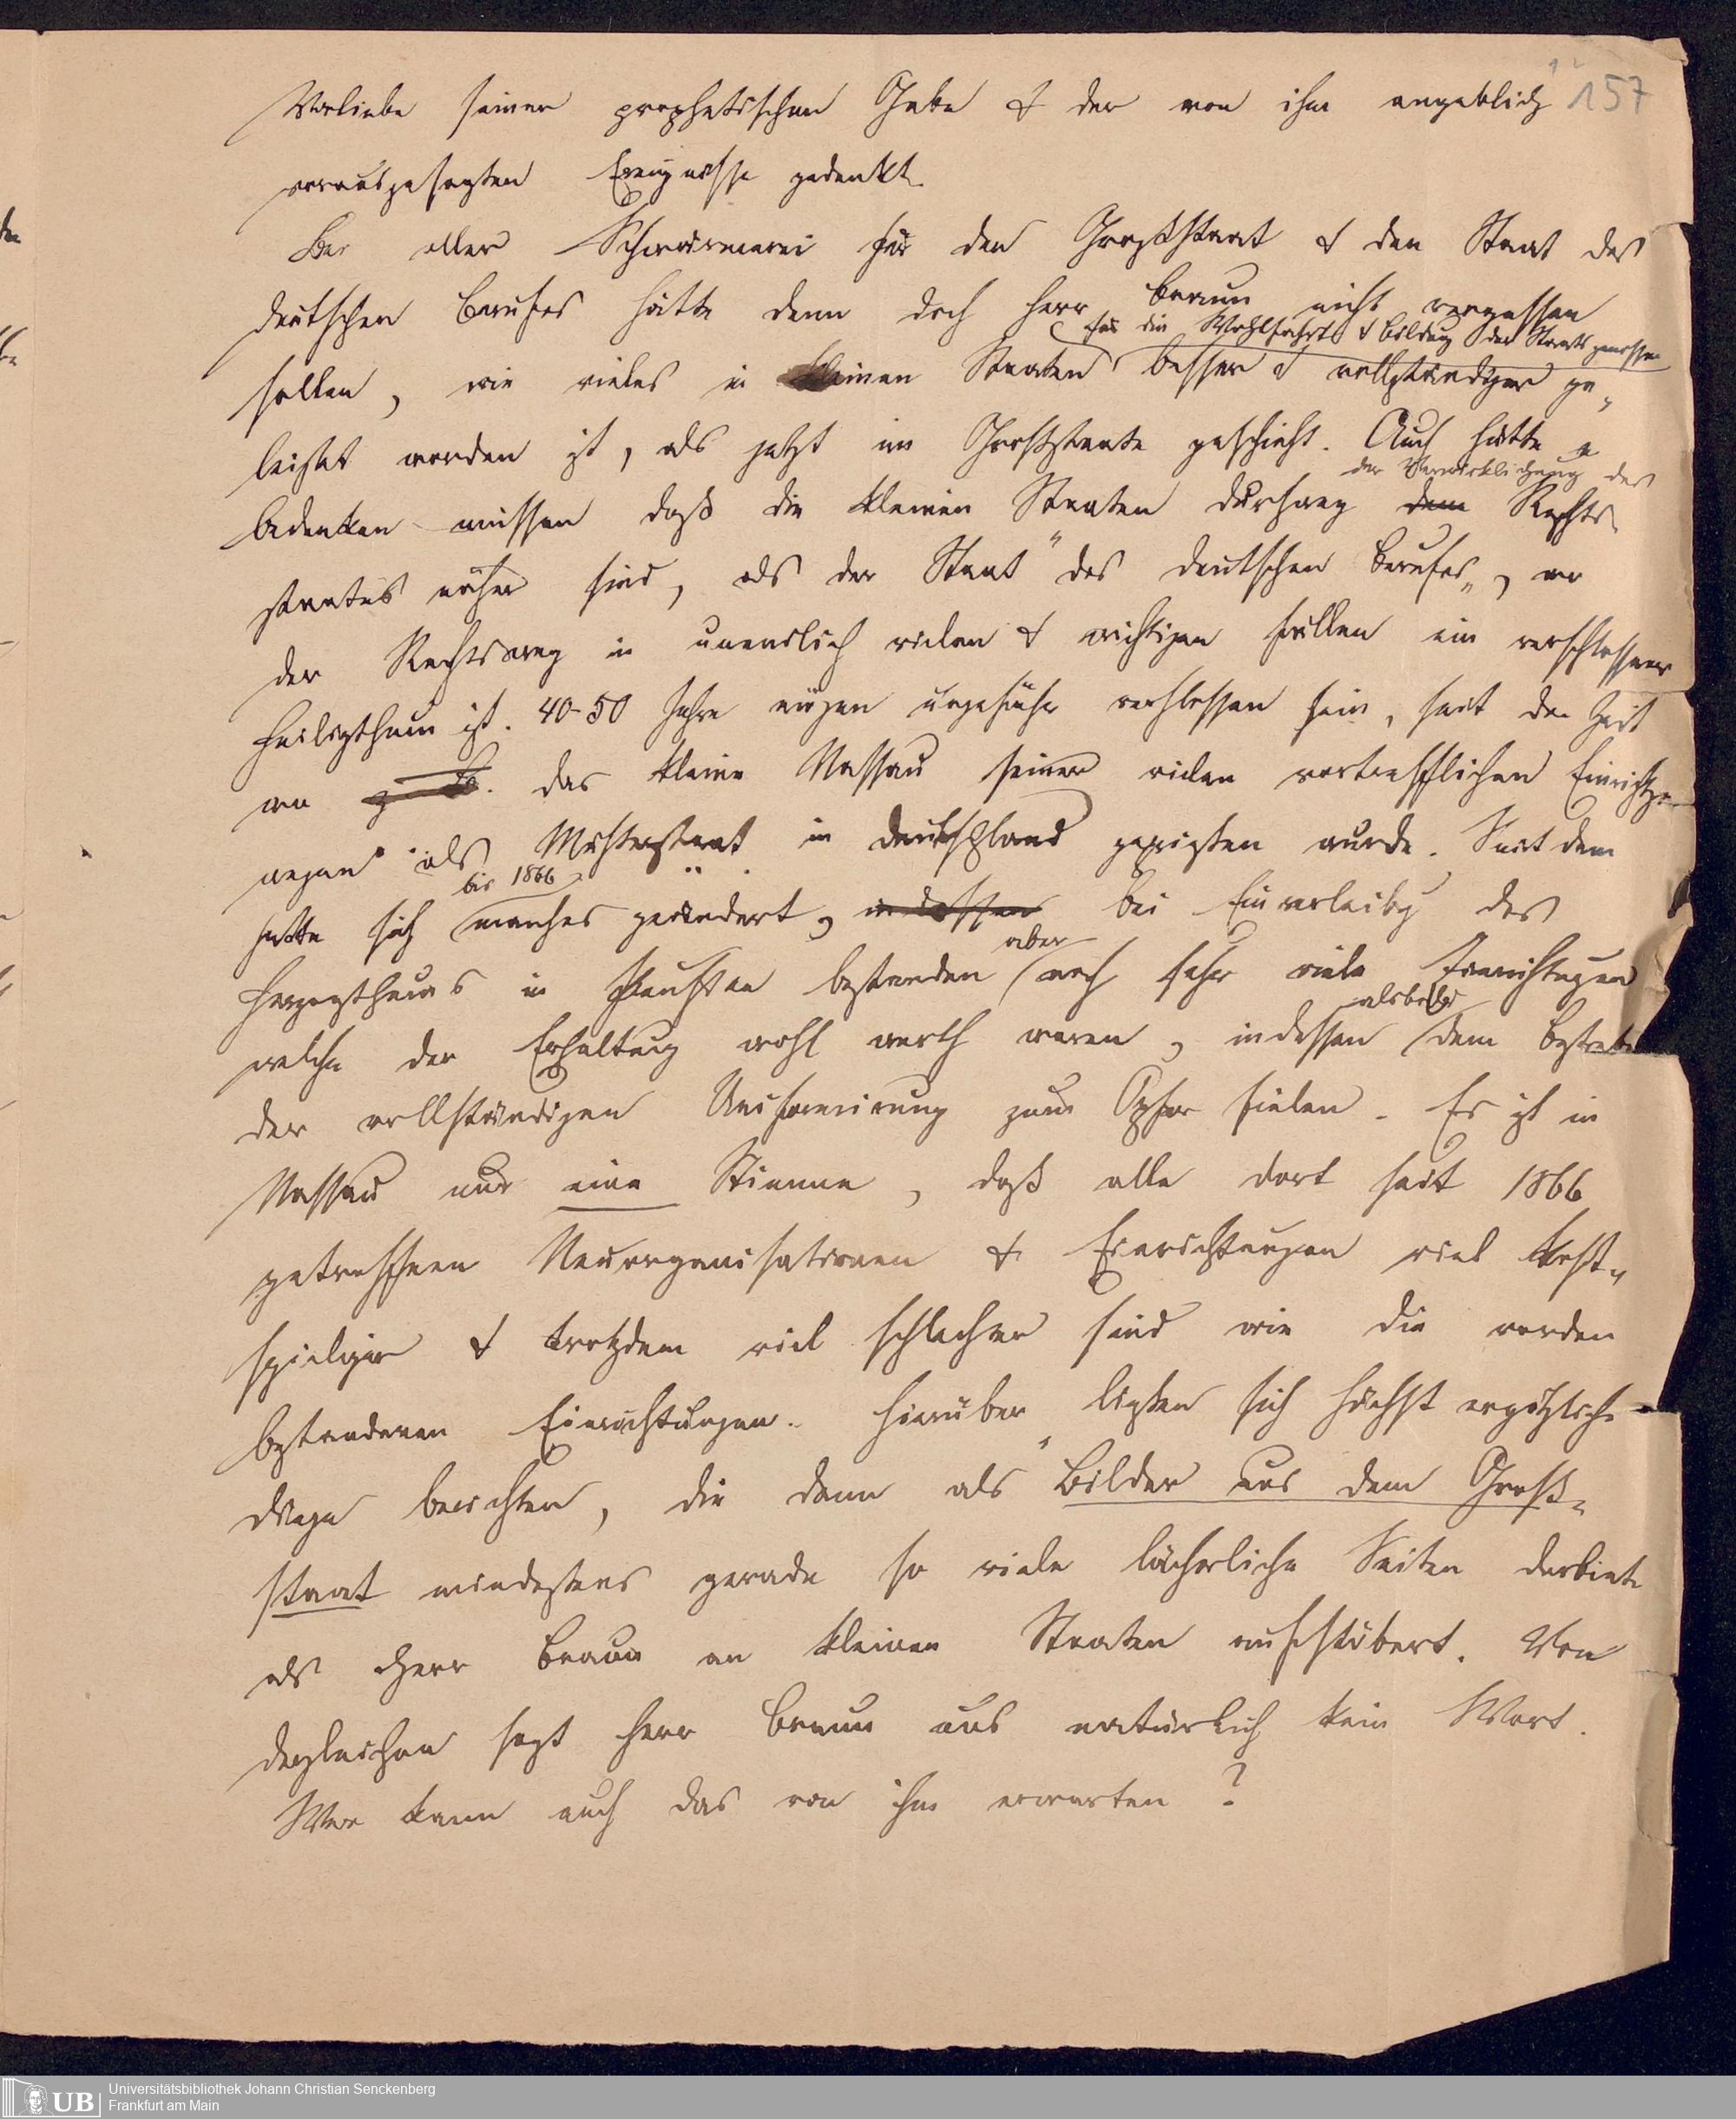 157
Vorliebe seiner prophetischen Gabe & der von ihm angeblich
vorausgesagten Ereignisse gedenkt.
Bei aller Schwärmerei für den Großstaat & den Staat des
deutschen Berufes hätte denn doch Herr Braun nicht vergessen
für die Wohlfahrt & Bildung der Staatsgenossen
sollen, wie vieles in kleinen Staaten besser & vollständiger ge„
leistet worden ist, als jetzt im Großstaate geschieht. Auch hätte er
der Verwirklichung des
bedenken müssen daß die kleinen Staaten durchweg dem Rechts
staates näher sind, als der Staat "des deutschen Berufes„, wo
der Rechtsweg in unendlich vielen & wichtigen Fällen ein verschlossenes
Heiligthum ist. 40-50 Jahre mögen ungefähr verflossen sein, seit der Zeit
wo das kleine Nassau seiner vielen vortrefflichen Einrichtgn
wegen als Musterstaat in Deutschland gepriesen wurde. Seitdem
bis 1866
hatte sich manches geändert, indessen bei Einverleibg des
aber
Herzogthums in Preußen bestanden noch sehr viele Einrichtungen
alsbald
welche der Erhaltung wohl werth waren, indessen dem Bestreben
der vollständigen Uniformirung zum Opfer fielen. Es ist in
Nassau nur eine Stimme, daß alle dort seit 1866
getroffenen Neuorganisationen & Einrichtungen viel kost„
spieliger & trotzdem viel schlechter sind wie die vordem
bestandenen Einrichtungen. Hierüber ließen sich höchst ergötzliche
Dinge berichten, die dann als "Bilder aus dem Groß„
staat mindestens gerade so viele lächerliche Seiten darbieten
als Herr Braun an kleinen Staaten aufstöbert. Von
dergleichen sagt Herr Braun uns natürlich kein Wort.
Wer kann auch das von ihm erwarten?
Universitätsbibliothek Johann Christian Senckenberg
Frankfurt am Main
UB